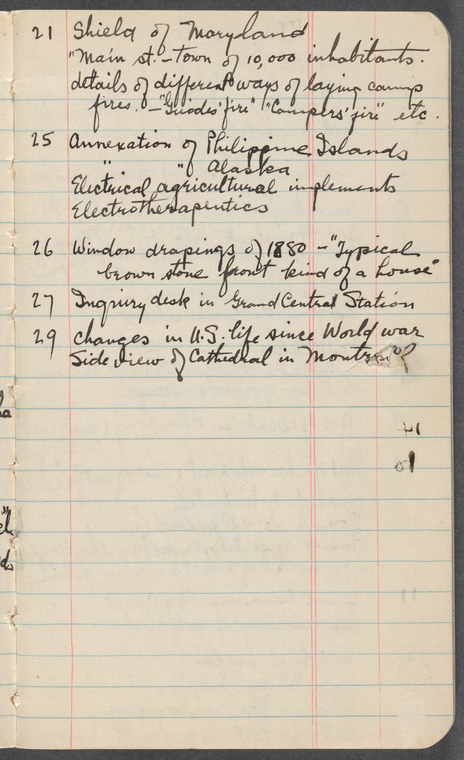 21 Shield of Maryland
"Main st." – Town of 10,000 inhabitants.
details of different ways of laying camp
fires. – "Guides' fire" "Campers' fire" etc.
25 Annexation of Philippine Islands
" " Alaska
Electrical agricultural implements
Electrotherapeutics
26 Window drapings of 1880 – "Typical
brown stone front kind of a house"
27 Inquiry desk in Grand Central Station
29 Changes in U.S. life since World war
Side view of Cathedral in Montreal